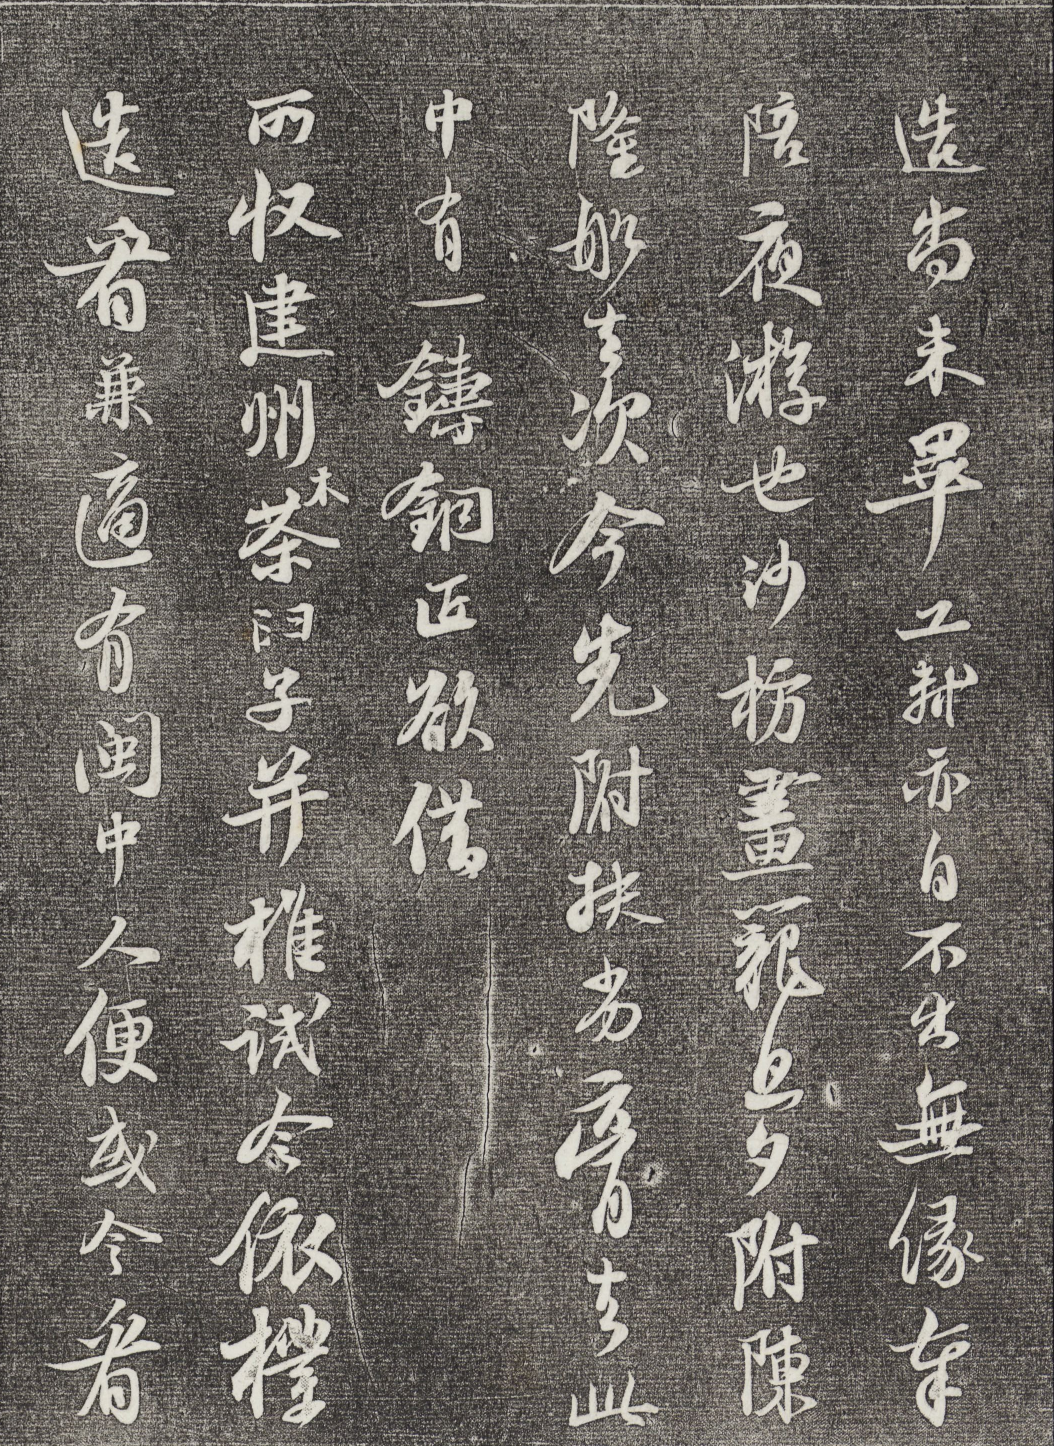 造尚未畢工軾亦自不出無緣奉
陪夜游也沙枋畫籠旦夕附陳
隆船去次今先附扶劣膏去此
中有一鑄銅匠欲借
所收建州木茶臼子并椎試令依樣
造看兼適有閩中人便或令看